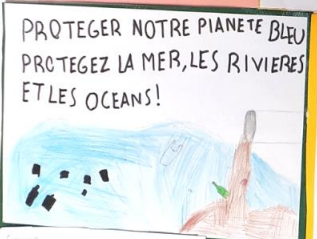 PROTEGER NOTRE PIANETE BLEU
PROTEGEZ LA MER, LES RIVIERES
ET LES OCEANS!